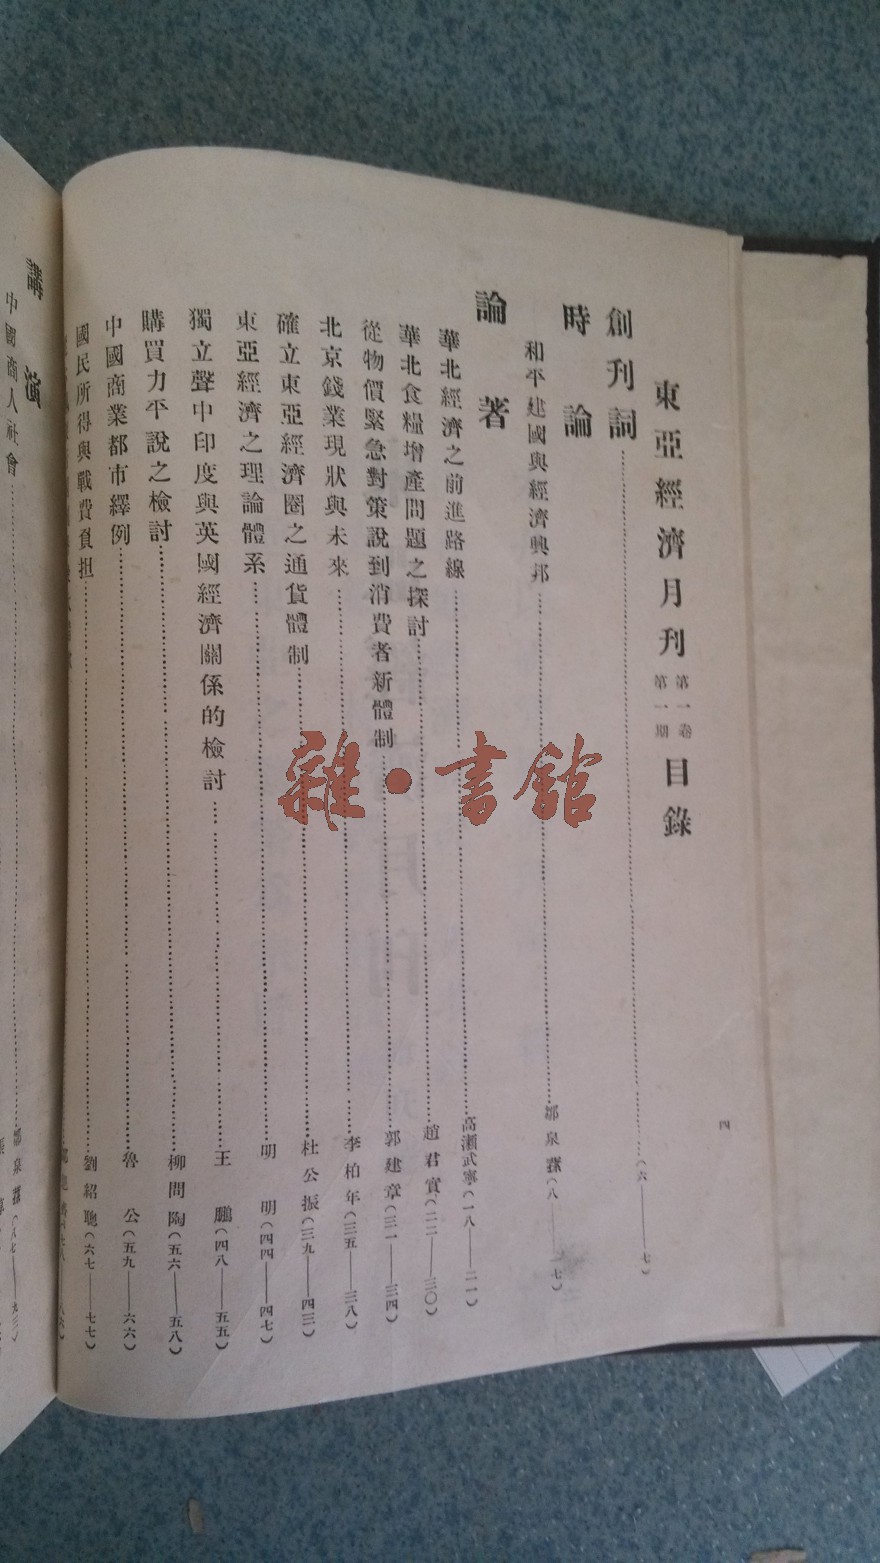 東亞經濟月刊 第一卷第一期 目錄
創刊詞……(六——七)
時論
和平建國與經濟興邦……鄒泉蓀(八——一七)
論著
華北經濟之前進路線……高瀨武寧(一八——二一)
華北食糧增產問題之探討……趙君實(二二——三〇)
從物價緊急對策說到消費者新體制……郭建章(三一——三四)
北京錢業現狀與未來……李柏年(三五——三八)
確立東亞經濟圈之通貨體制……杜公振(三九——四三)
東亞經濟之理論體系……明明(四四——四七)
獨立聲中印度與英國經濟關係的檢討……王鵬(四八——五五)
購買力平說之檢討……柳問陶(五六——五八)
中國商業都市繹例……魯公(五九——六六)
國民所得與戰費負担……劉紹聰(六七——七七)
講演
中國商人社會……鄒泉蓀(八七——九三)
四
雜·書館